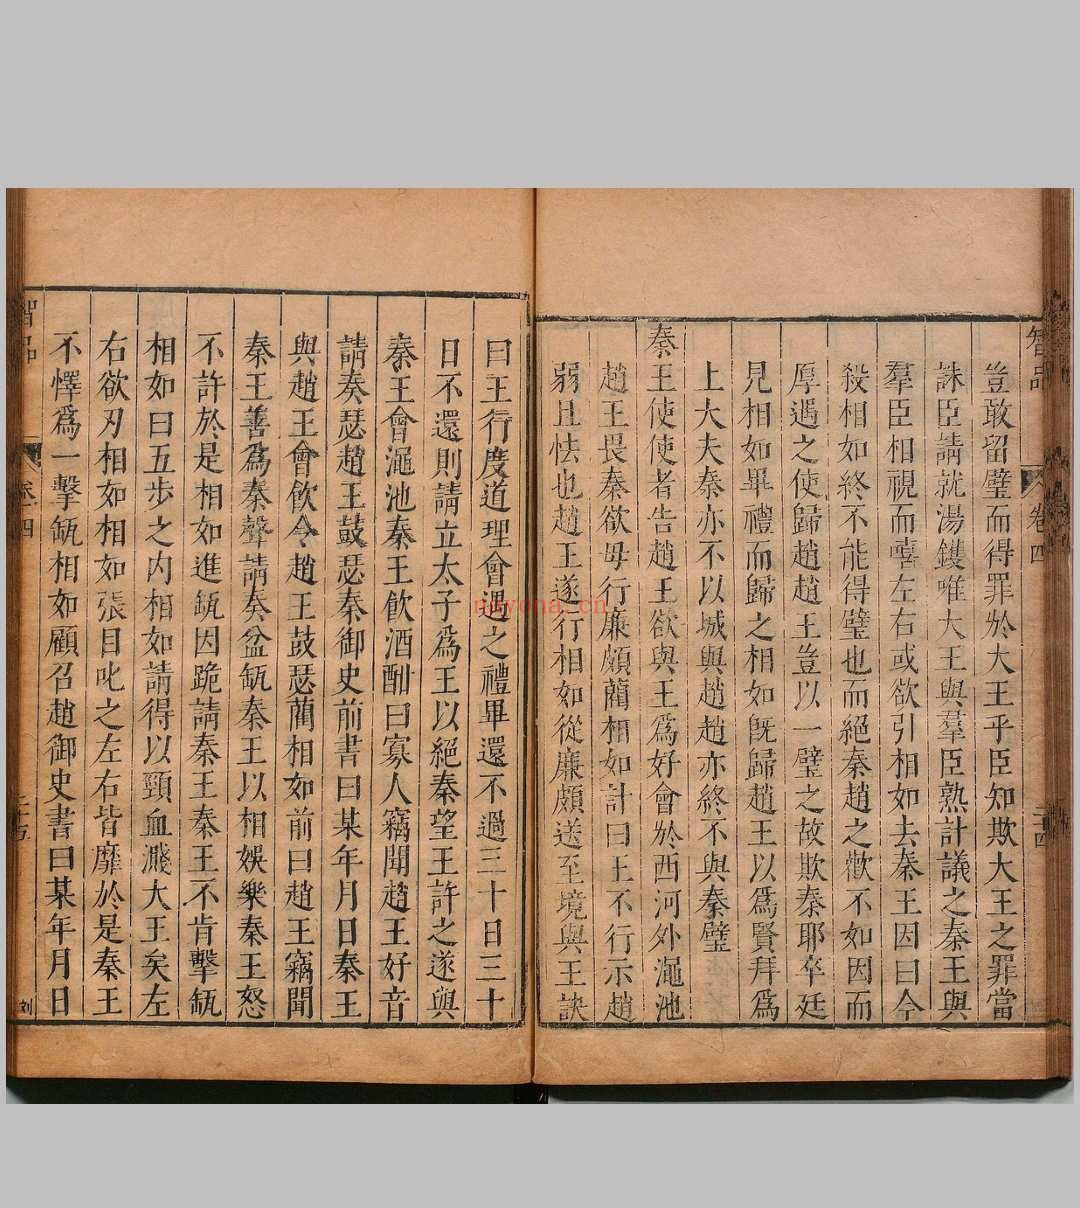 智品
卷四
二十四
豈敢留璧而得罪於大王乎臣知欺大王之罪當
誅臣請就湯鑊唯大王與羣臣熟計議之秦王與
羣臣相視而嘻左右或欲引相如去秦王因曰今
殺相如終不能得璧也而絕秦趙之歡不如因而
厚遇之使歸趙趙王豈以一璧之故欺秦耶卒廷
見相如畢禮而歸之相如既歸趙王以爲賢拜爲
上大夫秦亦不以城與趙趙亦終不與秦璧
秦王使使者告趙王欲與王爲好會於西河外澠池
趙王畏秦欲毋行廉頗藺相如計曰王不行示趙
弱且怯也趙王遂行相如從廉頗送至境與王訣
曰王行度道理會遇之禮畢還不過三十日三十
日不還則請立太子爲王以絕秦望王許之遂與
秦王會澠池秦王飲酒酣曰寡人竊聞趙王好音
請奏瑟趙王鼓瑟秦御史前書曰某年月日秦王
與趙王會飲令趙王鼓瑟藺相如前曰趙王竊聞
秦王善爲秦聲請奏盆缻秦王以相娛樂秦王怒
不許於是相如進缻因跪請秦王秦王不肯擊缻
相如曰五步之內相如請得以頸血濺大王矣左
右欲刃相如相如張目叱之左右皆靡於是秦王
不懌爲一擊缻相如顧召趙御史書曰某年月日
智品
卷四
二十五
刘
nayona.cn